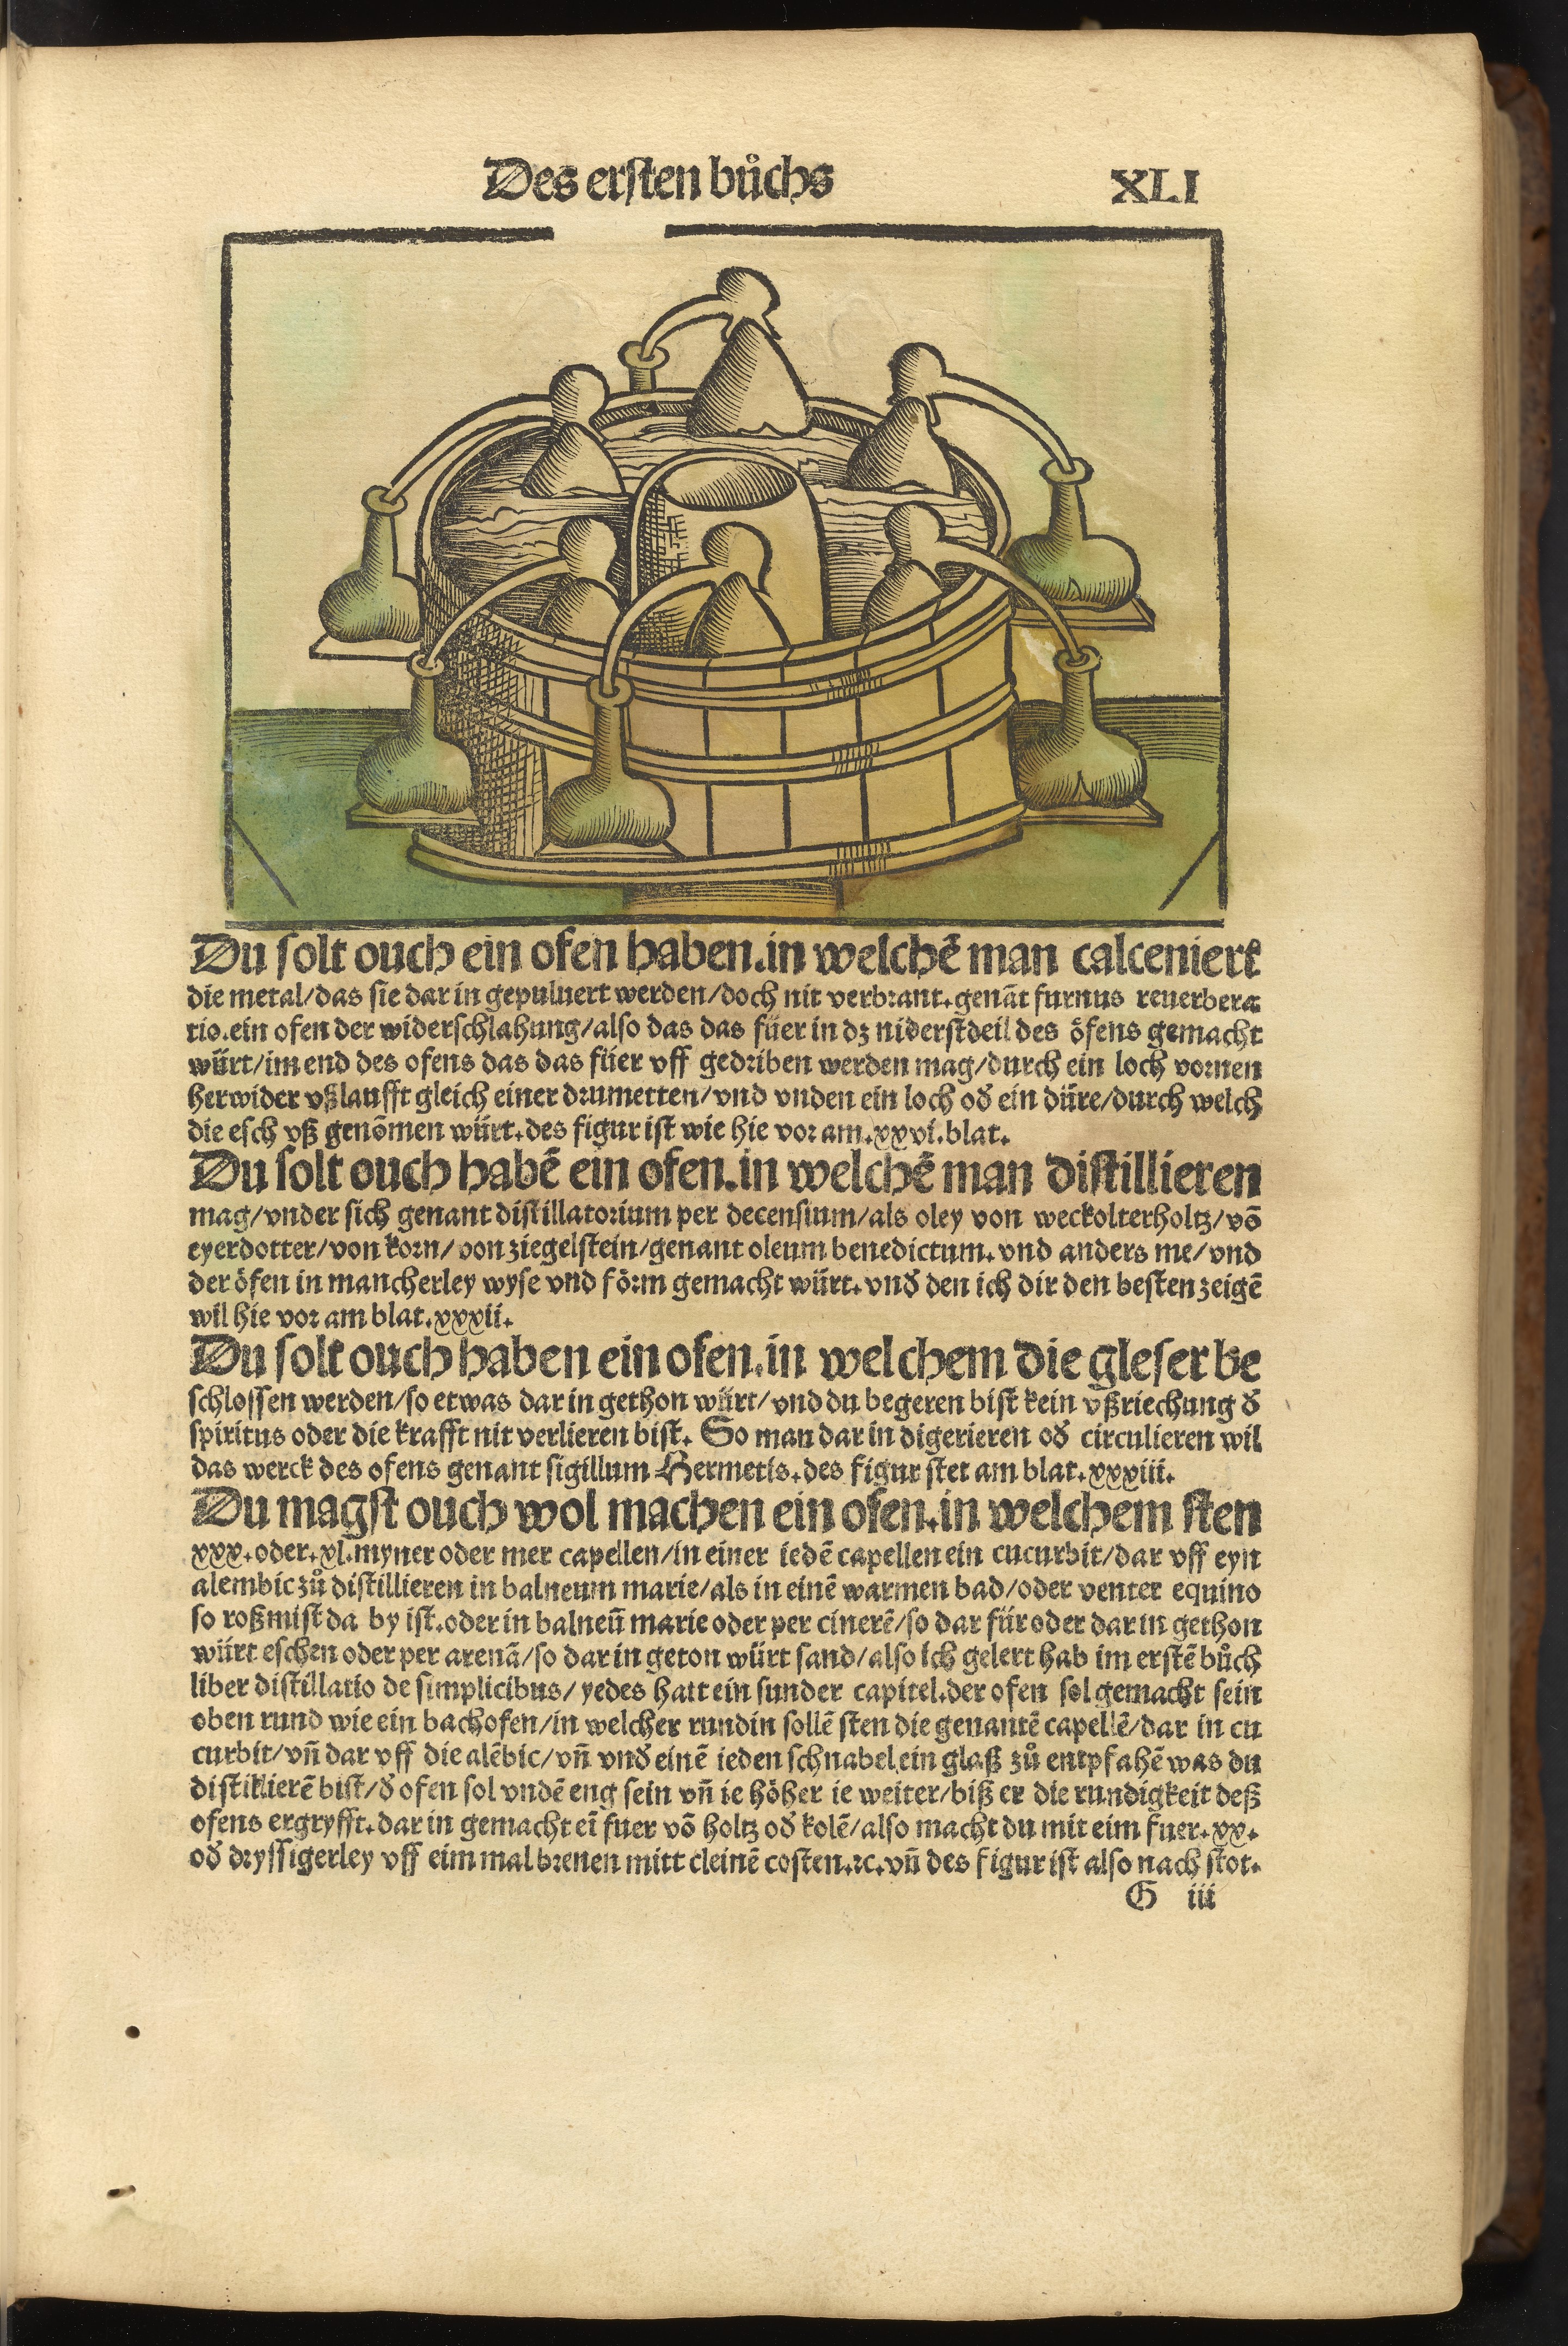 Des ersten bůchs XLI
Du solt ouch ein ofen haben.in welchẽ man calceniert
die metal/das sie dar in gepuluert werden/doch nit verbrant.genãt furnus reuerbera
tio.ein ofen der widerschlahung/also das das füer in dz niderstdeil des öfens gemacht
würt/im end des ofens das das füer vff gedriben werden mag/durch ein loch vornen
herwider vßlaufft gleich einer drumetten/vnd vnden ein loch oď ein düre/durch welch
die esch vß genõmen würt.des figur ist wie hie vor am.xxvi.blat.
Du solt ouch habẽ ein ofen.in welchẽ man distillieren
mag/vnder sich genant distillatorium per decensium/als oley von weckolterholtz/võ
eyerdotter/von korn/von ziegelstein/genant oleum benedictum.vnd anders me/vnd
der öfen in mancherley wyse vnd förm gemacht würt.vnď den ich dir den besten zeigẽ
wil hie vor am blat.xxxii.
Du solt ouch haben ein ofen.in welchem die gleser be
schlossen werden/so etwas dar in gethon würt/vnd du begeren bist kein vßriechung ď
spiritus oder die krafft nit verlieren bist. So man dar in digerieren oď circulieren wil
das werck des ofens genant sigillum Hermetis.des figur stet am blat.xxxiii.
Du magst ouch wol machen ein ofen.in welchem sten
xxx.oder.xl.myner oder mer capellen/in einer iedẽ capellen ein cucurbit/dar vff eyn
alembic zů distillieren in balneum marie/als in einẽ warmen bad/oder venter equino
so roßmist da by ist.oder in balneũ marie oder per cinerẽ/so dar für oder dar in gethon
würt eschen oder per arenã/so dar in geton würt sand/also ich gelert hab im erstẽ bůch
liber distillatio de simplicibus/yedes hatt ein sunder capitel.der ofen sol gemacht sein
oben rund wie ein bachofen/in welcher rundin sollẽ sten die genantẽ capellẽ/dar in cu
curbit/vñ dar vff die alẽbic/vñ vnď einẽ ieden schnabel ein glaß zů entpfahẽ was du
distiklierẽ bist/ď ofen sol vndẽ eng sein vñ ie höher ie weiter/biß er die rundigkeit deß
ofens ergryfft.dar in gemacht eĩ fuer võ holtz oď kolẽ/also macht du mit eim fuer.xx.
oď dryssigerley vff eim mal brenen mitt cleinẽ costen.ꝛc.vñ des figur ist also nach stot.
G iii